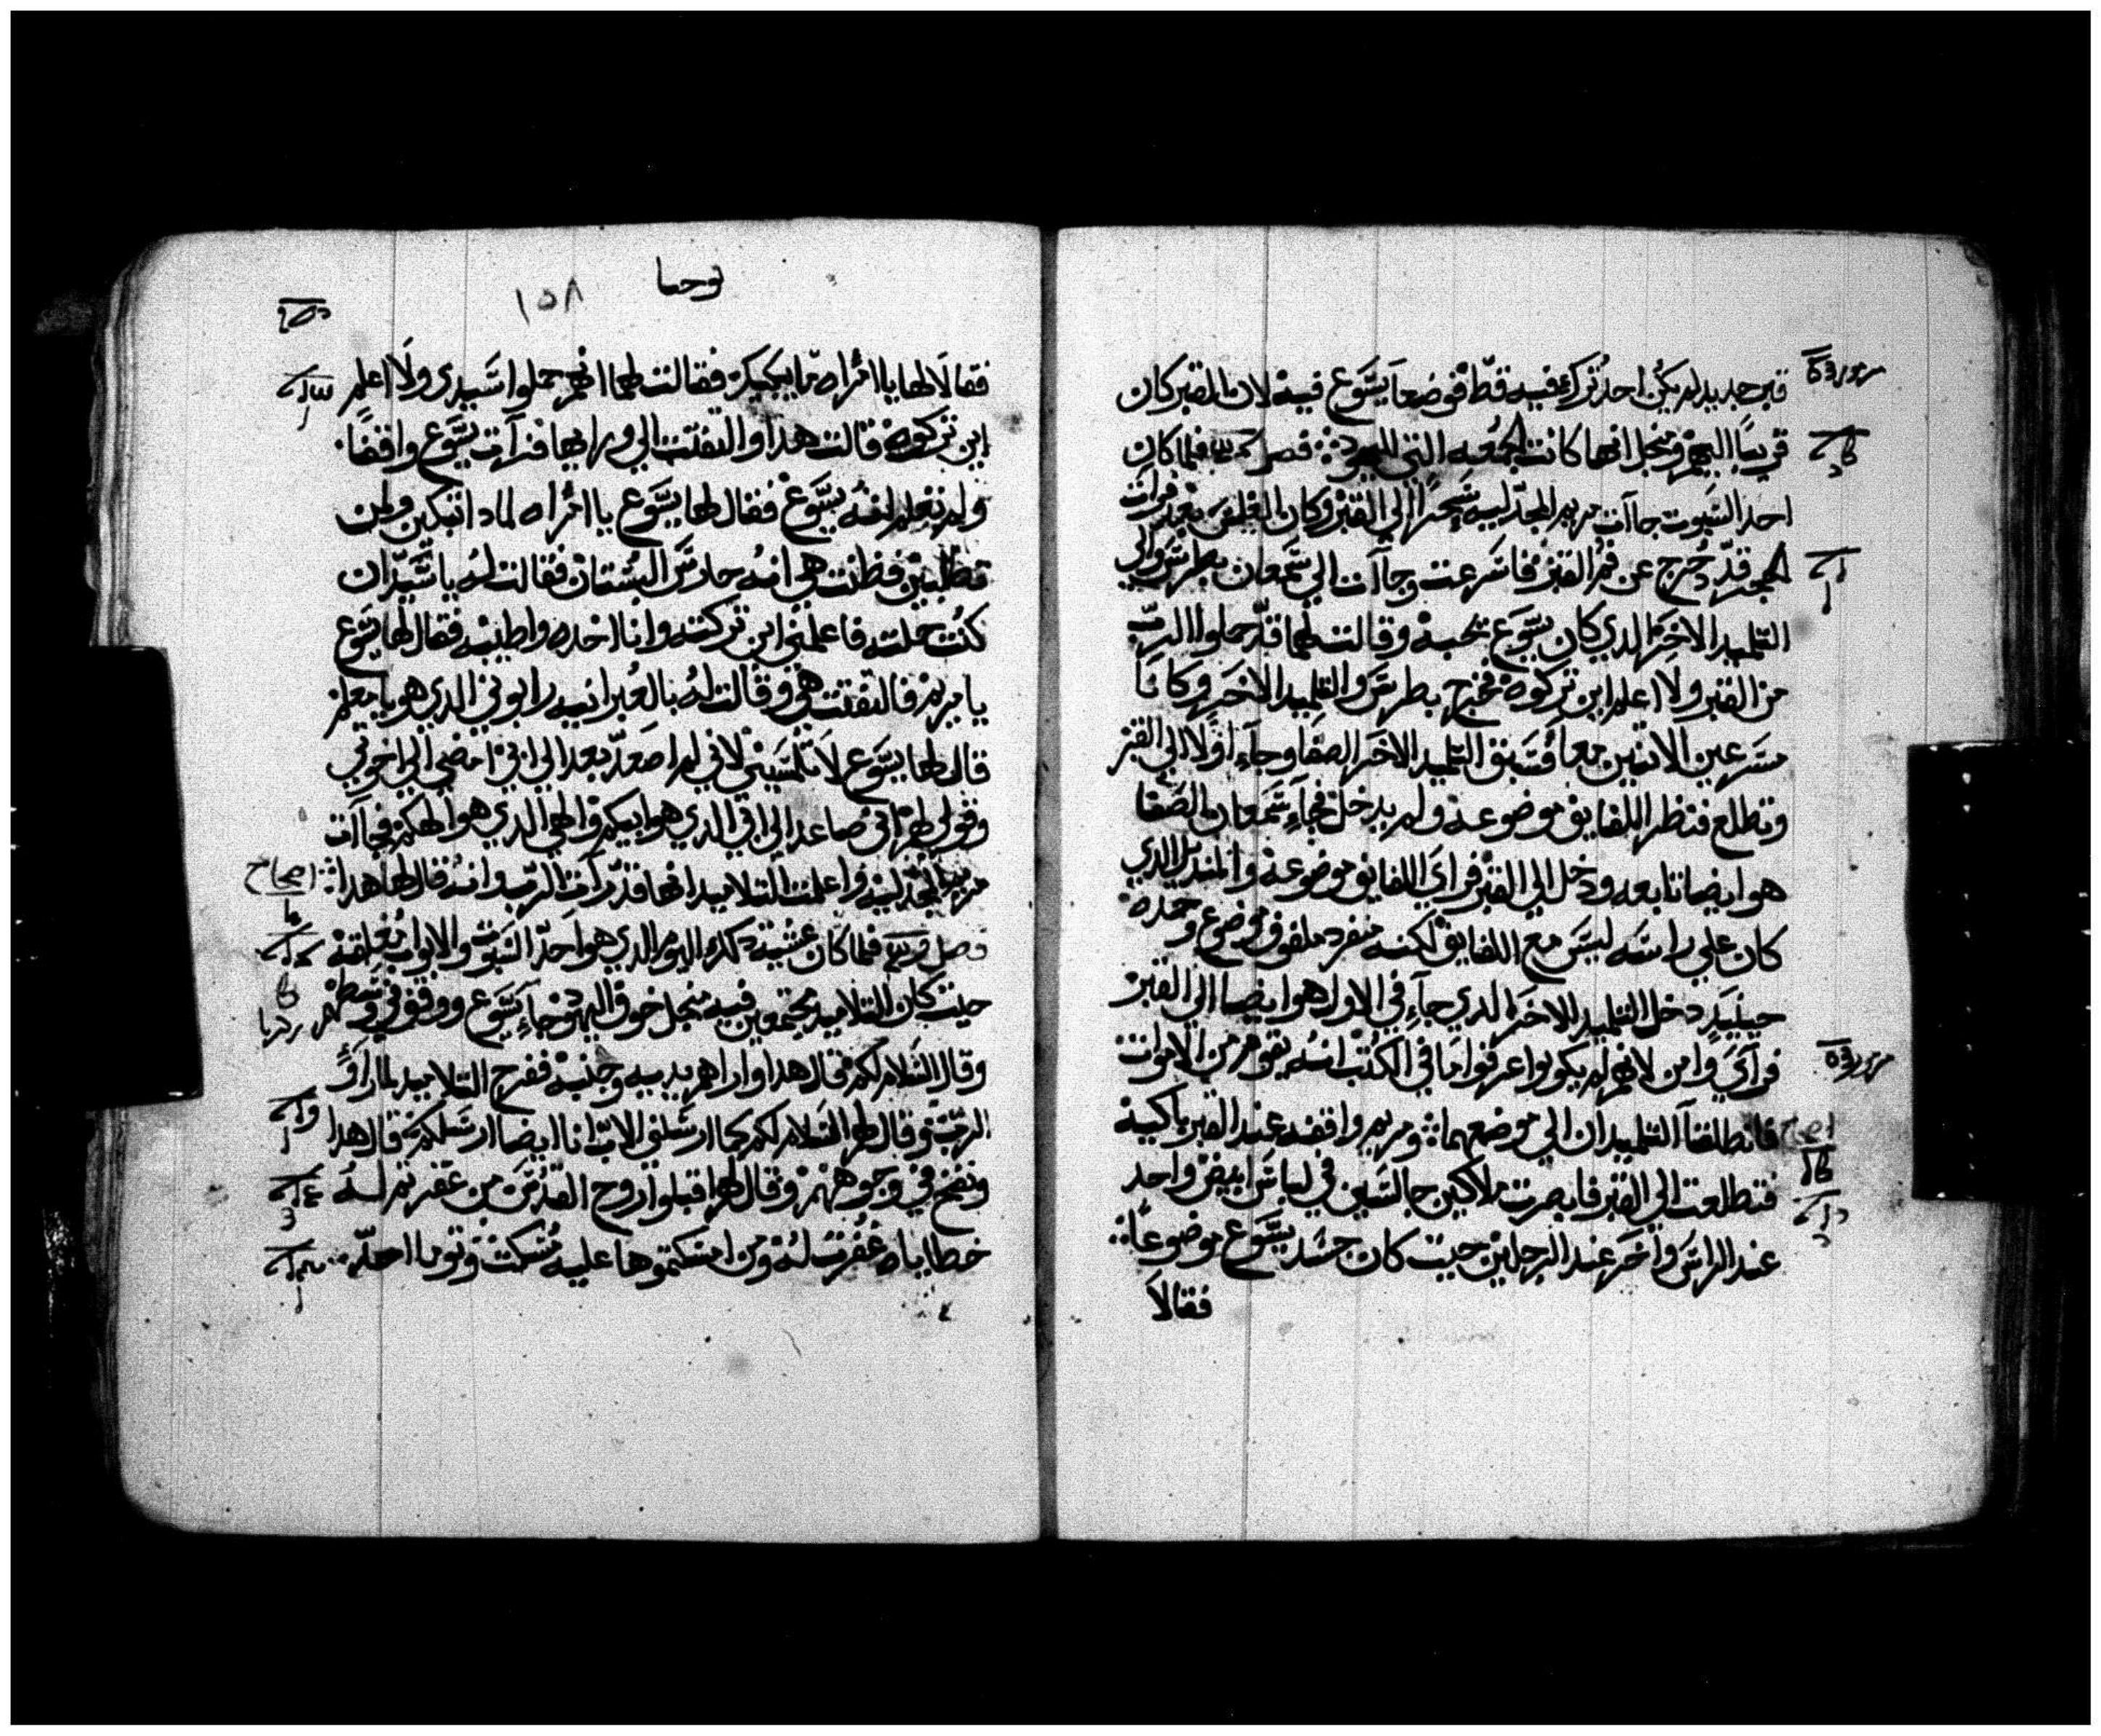 قبر جديد لم يكن احد ترك فيه قط فوضعا يسوع فيه لان المقبر كان
قريبا اليهم ومنجل انها كانت الجمعه التي لليهود فصل فلما كان
احد السبوت جاآت مريم المجدليه سحرا الي القبر وكان الغلس بعد فرات
الحجر قد دحرج عن فم القبر فاسرعت وجاآت الي سمعان بطرس والي
التلميد الاخر الدي كان يسوع يحبه وقالت لهما قد حملوا الرب
من القبر ولا اعلم اين تركوه فخرج بطرس والتلميد الاخر وكانا
مسرعين الاتنين معا فسبق التلميد الاخر الصفا وجاء اولا الي القبر
وتطلع فنظر اللفايف موضوعه ولم يدخل فجاء سمعان الصفا
هو ايضا تابعه ودخل الي القبر فراي اللفايف موضوعه والمنديل الدي
كان علي راسه ليس مع اللفايف لكنه منفرد ملفوف في موضع وحده
حينيد دخل التلميد الاخر الدي جاء في الاول هو ايضا الي القبر
فراي وامن لانهم لم يكونوا عرفوا ما في الكتب انه يقوم من الاموات
اصحاح
فانطلقا التلميدان الي موضعهما ومريم واقفه عند القبر باكيه
فتطلعت الي القبر فابصرت ملاكين جالسين في لباس ابيض واحد
عند الراس واخر عند الرجلين حيت كان جسد يسوع موضوعا
فقالا
يوحنا
١٥٨
فقالا لها يا امراه ما يبكيك فقالت لهما انهم حملوا سيدي ولا اعلم
اين تركوه قالت هدا والتفتت الي ورايها فرآت يسوع واقفا
ولم تعلم انه يسوع فقال لها يسوع يا امراه لمادا تبكين ولمن
تطلبين فظنت هي انه حارس البستان فقالت له يا سيد ان
كنت حملته فاعلمني اين تركته وانا اخده واطيبه فقال لها يسوع
يا مريم فالتفتت هي وقالت له بالعبرانيه رابوني الدي هو يا معلم
قال لها يسوع لا تلمسيني لاني لم اصعد بعد الي ابي امضي الي اخوتي
وقولي لهم اني صاعد الي ابي الدي هو ابيكم والهي الدي هو الهكم فجاآت
مريم المجدليه واعلمت التلاميد انها قد رآت الرب وانه قال لها هدا
اصحاح
فصل فلما كان عشيه دلك اليوم الدي هو احد السبوت والابواب مغلقه
حيت كان التلاميد مجتمعين فيه منجل خوف اليهود جاء يسوع ووقف في وسطهم
وقال السلام لكم قال هدا واراهم يديه وجنبه ففرح التلاميد لما راوا
الرب وقال لهم السلام لكم كما ارسلني الاب انا ايضا ارسلكم قال هدا
ونفخ في وجوههم وقال لهم اقبلوا روح القدس من غفرتم له
خطاياه غفرت له ومن امسكتموها عليه مسكت وتوما احد